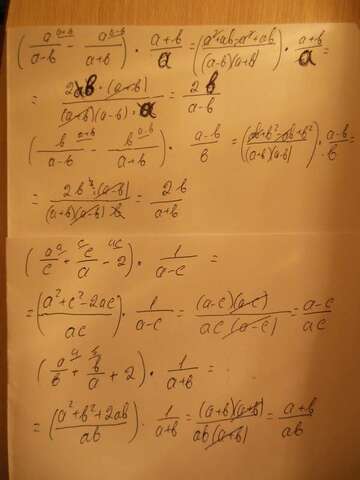 (a^{a+b}/(a-b) - a^{a-b}/(a+b)) · (a+b)/a = ((a²+ab-a²+ab)/((a-b)(a+b))) · (a+b)/a =
= (2ab · (a+b))/((a+b)(a-b) · a) = 2b/(a-b)
(b^{a+b}/(a-b) - b^{a-b}/(a+b)) · (a-b)/b = ((ab+b²-ab+b²)/((a+b)(a-b))) · (a-b)/b =
= (2b² · (a-b))/((a+b)(a-b) b) = 2b/(a+b)
(a^{a}/c + c^{c}/a - 2^{ac}) · 1/(a-c) =
= ((a²+c²-2ac)/ac) · 1/(a-c) = ((a-c)(a-c))/(ac(a-c)) = (a-c)/ac
(a^{a}/b + b^{b}/a + 2) · 1/(a+b) =
= ((a²+b²+2ab)/ab) · 1/(a+b) = ((a+b)(a+b))/(ab(a+b)) = (a+b)/ab